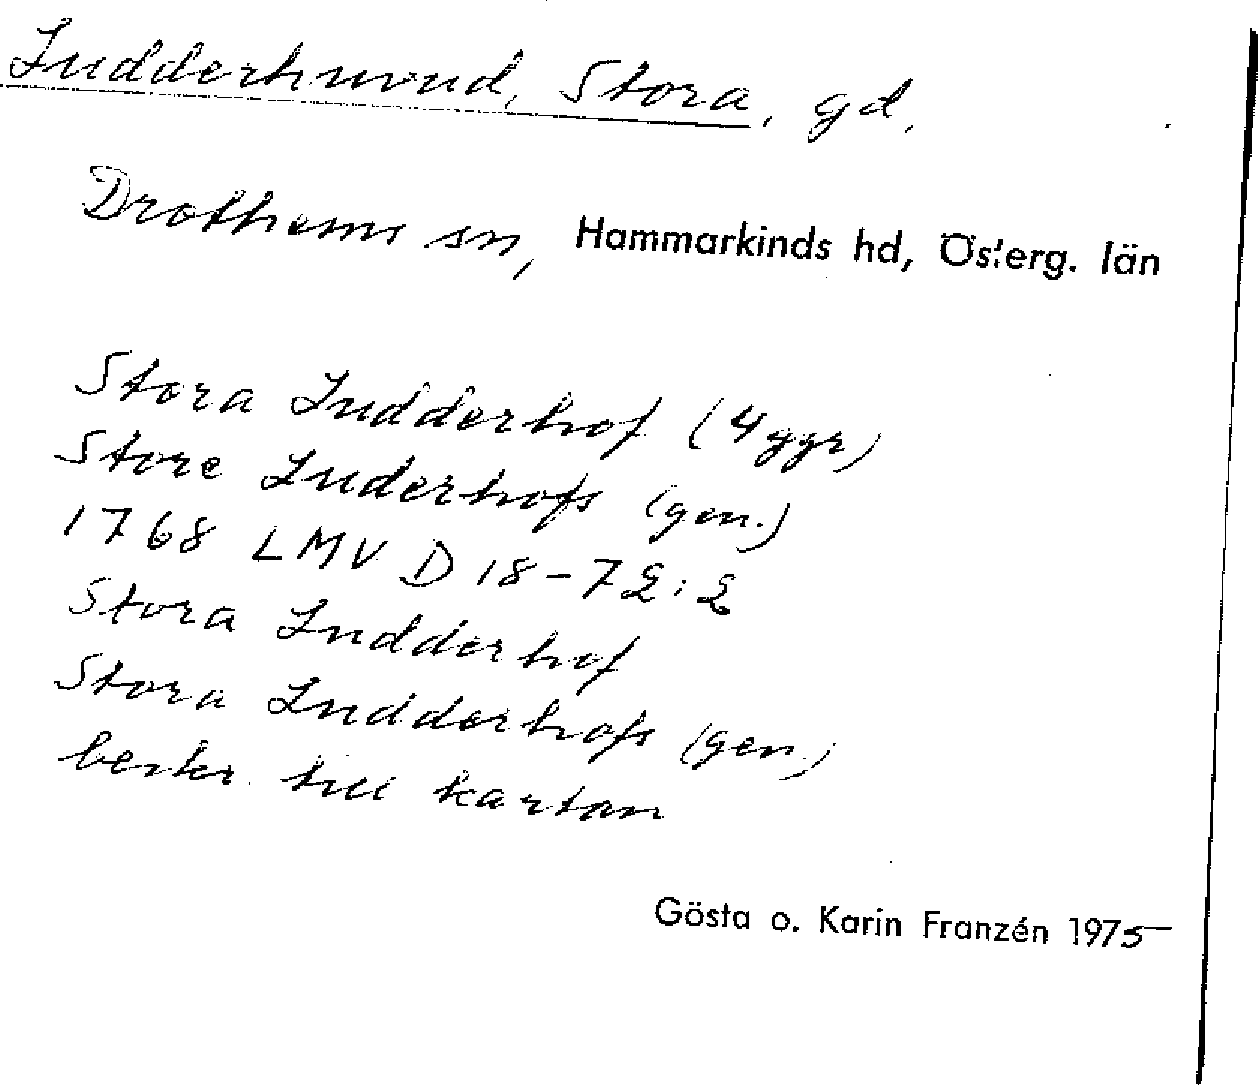 Ludderhuvud, Stora, gd,
Drothems sn, Hammarkinds hd, Österg. län
Stora Ludderhof (4 ggr)
Store Luderhofs (gen.)
1768 LMV D 18-72:2
Stora Ludderhof
Stora Ludderhofs (gen.)
beskr. till kartan
Gösta o. Karin Franzén 1975